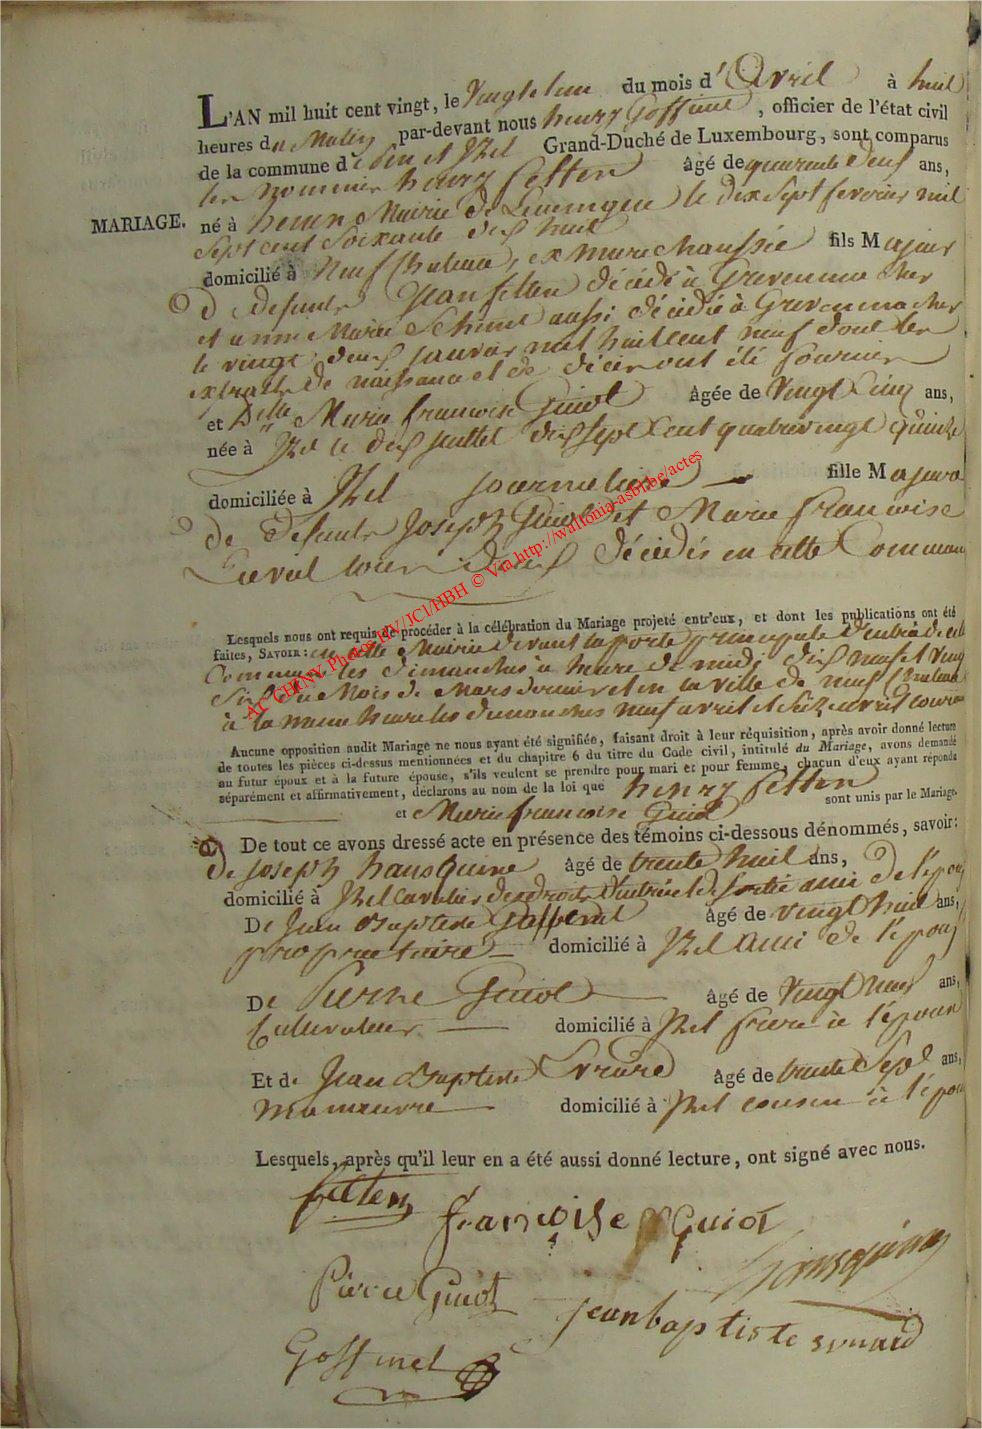 L'AN mil huit cent vingt, le Vingt et un du mois d'Avril à huit
heures du Matin par-devant nous henry Goffinet, officier de l'état civil
de la commune d'et Izel Grand-Duché de Luxembourg, sont comparus
henry felten âgé de quarante deux ans,
MARIAGE.
né à Mairie de le dix sept fevrier mil
Sept cent Soixante dix huit
domicilié à Neufchateau, ex marechaussée fils Majeur
de defunts Jean felten décédé à Grevenmacher
et anne Marie aussi décédée à Grevenmacher
le vingt deux janvier mil huit cent neuf dont les
extraits de naissance et de décès ont été fournier
et Delle Marie francoise Guiot âgée de Vingt Cinq ans,
née à Izel le dix juillet dix sept Cent quatrevingt quinze
domiciliée à Izel journaliere fille Majeure
de defunts Joseph Guiot et Marie francoise
tous deux décédés en cette Commune
Lesquels nous ont requis de procéder à la célébration du Mariage projeté entr'eux, et dont les publications ont été
faites, SAVOIR: en cette Mairie devant la porte principale d'entrée de cette
Commune les dimanches à heure de midi dix neuf et vingt
Six du Mois de Mars dernier et en la ville de neufchateau
à la meme heure les dimanches neuf avril et Seize avril courant
Aucune opposition audit Mariage ne nous ayant été signifiée, faisant droit à leur réquisition, après avoir donné lecture
de toutes les pièces ci-dessus mentionnées et du chapitre 6 du titre du Code civil, intitulé du Mariage, avons demandé
au futur époux et à la future épouse, s'ils veulent se prendre pour mari et pour femme, chacun d'eux ayant répondu
séparément et affirmativement, déclarons au nom de la loi que henry felten
et Marie francoise Guiot sont unis par le Mariage.
De tout ce avons dressé acte en présence des témoins ci-dessous dénommés, savoir:
de joseph hansquine âgé de trente huit ans,
domicilié à Izel Cavalier des droits d'entrée et de sortie ami de l'epoux
De Jean Baptiste Goffinet âgé de vingt huit ans,
proprietaire domicilié à Izel ami de l'epoux
De Pierre Guiot âgé de Vingt neuf ans,
Cultivateur domicilié à Izel frere à l'épouse
Et de Jean Baptiste âgé de trente Sept ans,
manœuvre domicilié à Izel cousin à l'épouse
Lesquels, après qu'il leur en a été aussi donné lecture, ont signé avec nous.
felten
francoise Guiot
hansquine
Pierre Guiot
jean baptiste
Goffinet
Ar. CHINY Photos RV/JCl/HBH © Via http://wallonia-asbl.be/actes